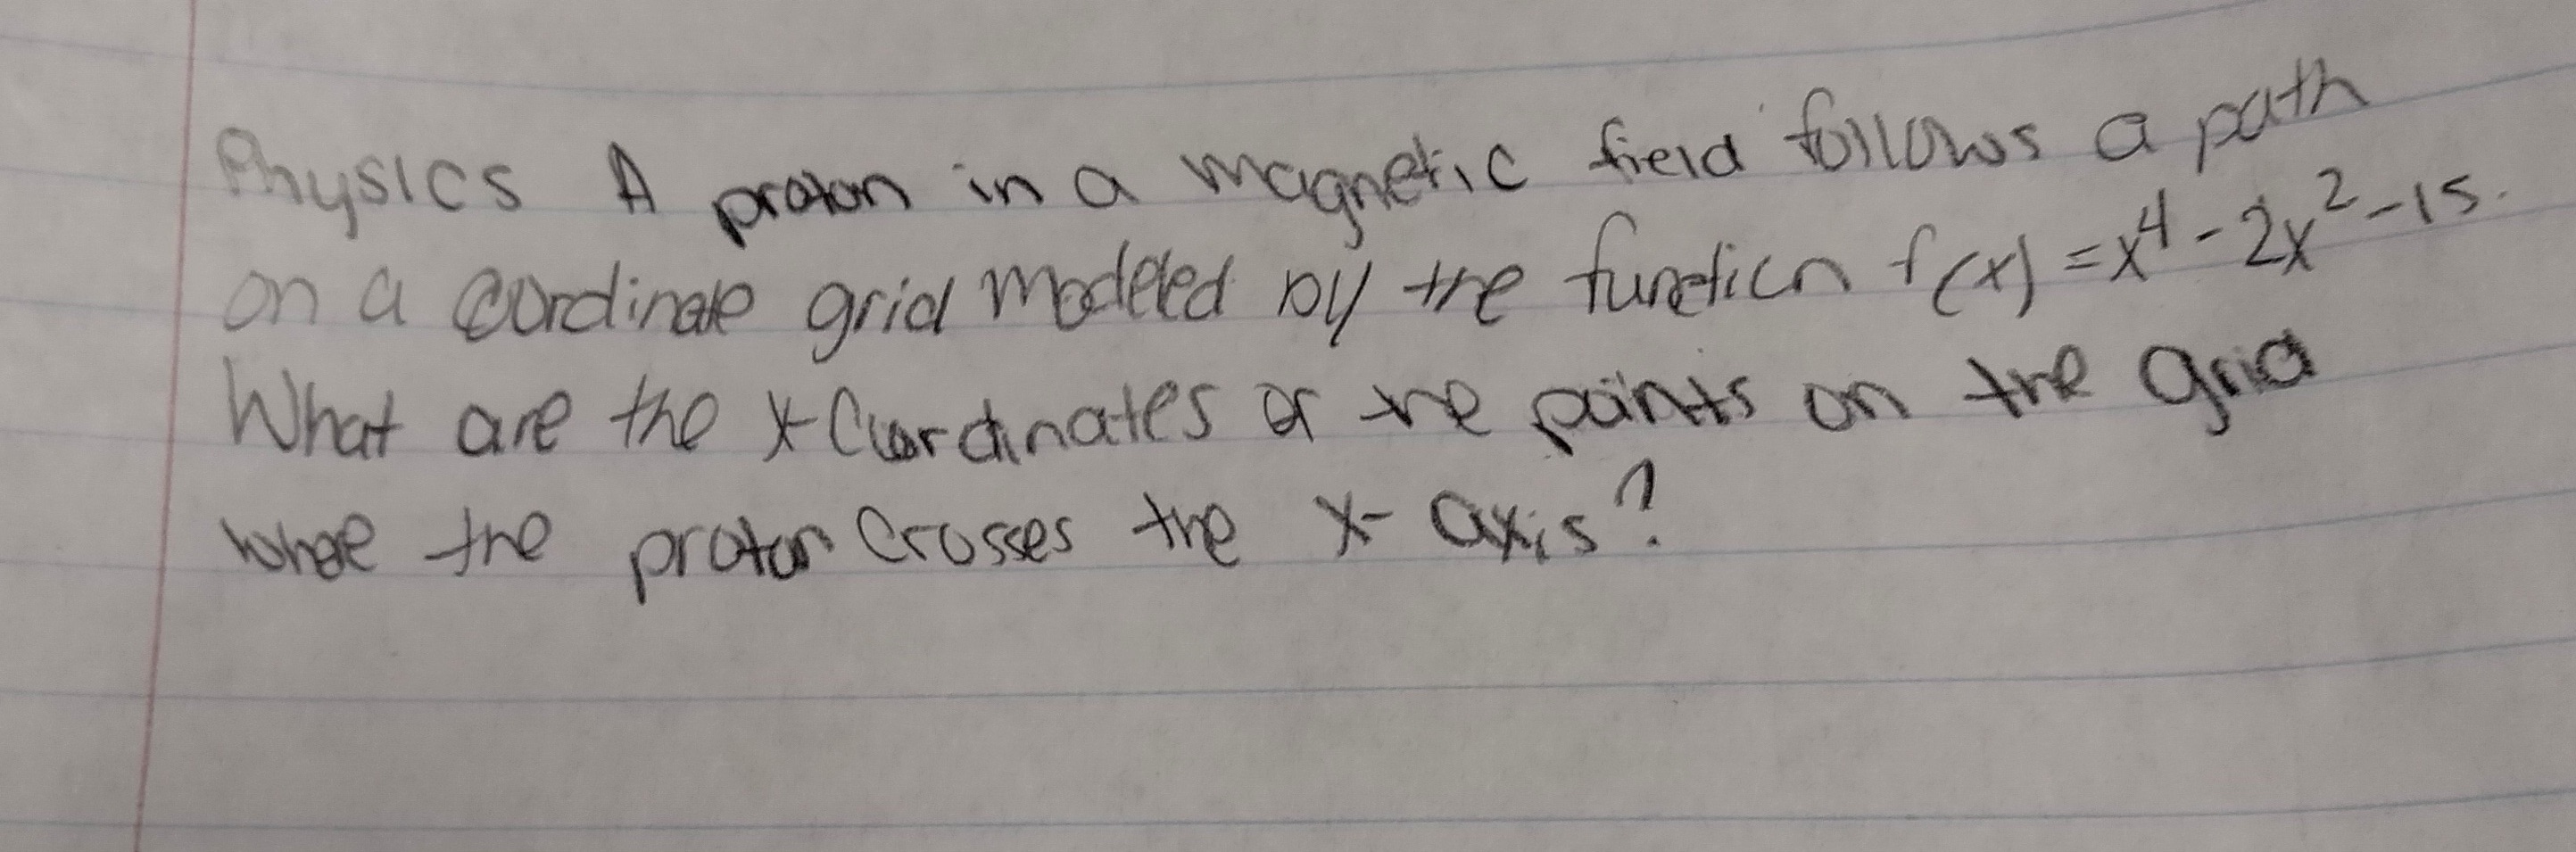 Physics A proton in a magnetic field follows a path
on a coordinate grid modeled by the function f(x) = x⁴ - 2x² - 15.
What are the x-Coordinates of the points on the grid
where the proton Crosses the x-axis?